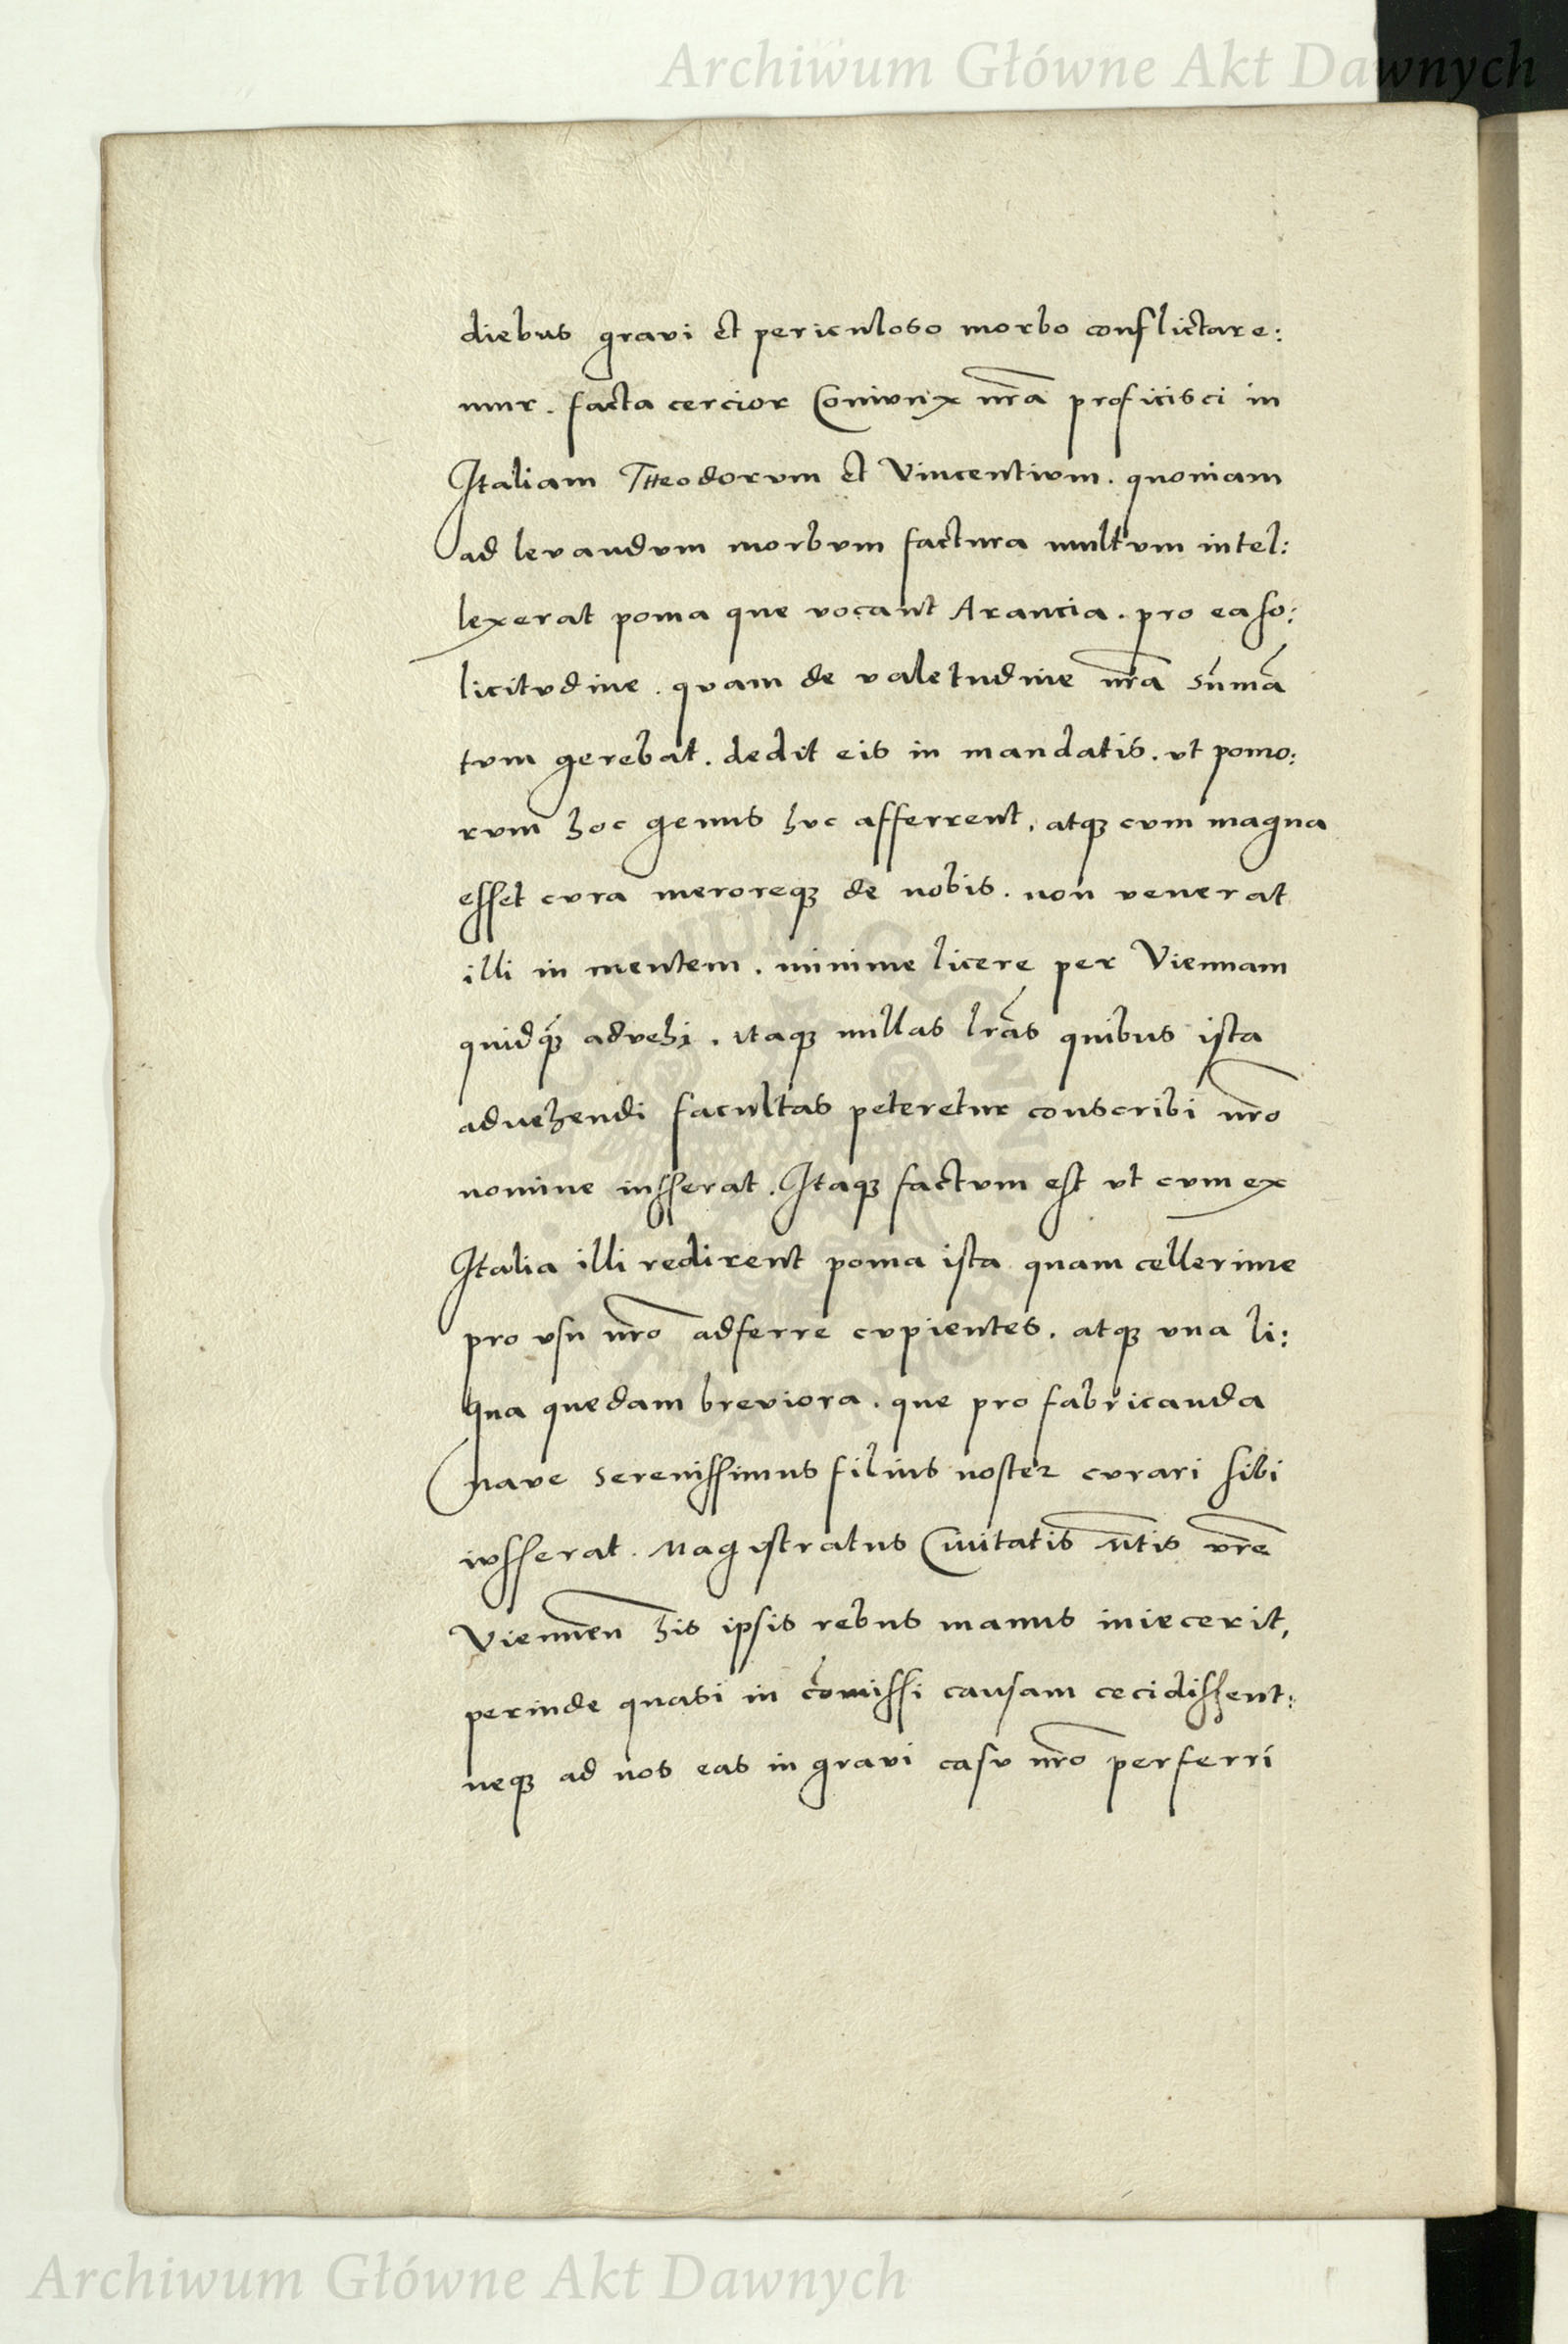 Archiwum Główne Akt Dawnych
diebus gravi et periculoso morbo conflictare:
mur. facta cercior Coniunx nr̃a proficisci in
Italiam Theodorum et Vincentium. quoniam
ad levandum morbum factura multum intel:
lexerat poma que vocant Arancia. pro ea so:
licitudine. quam de valetudine nr̃a sum̃ã
tum gerebat. dedit eis in mandatis. ut pomo:
rum hoc genus huc afferrent, atq̃ cum magna
esset cura meroreq̃ de nobis. non venerat
illi in mentem. minime licere per Viennam
quidq̃ advehi. itaq̃ nullas lr̃as quibus ista
advehendi facultas peteretur conscribi nr̃o
nomine iusserat. Itaq̃ factum est ut cum ex
Italia illi redirent poma ista quam cellerime
pro usu nr̃o adferre cupientes. atq̃ una li:
gna quedam breviora. que pro fabricanda
nave Serenissimus filius noster curari sibi
iusserat. Magistratus Civitatis Vr̃e
Viennen̄ his ipsis rebus manus iniecerit,
perinde quasi in com̃issi causam cecidissent:
neq̃ ad nos eas in gravi casu nr̃o perferri
Archiwum Główne Akt Dawnych